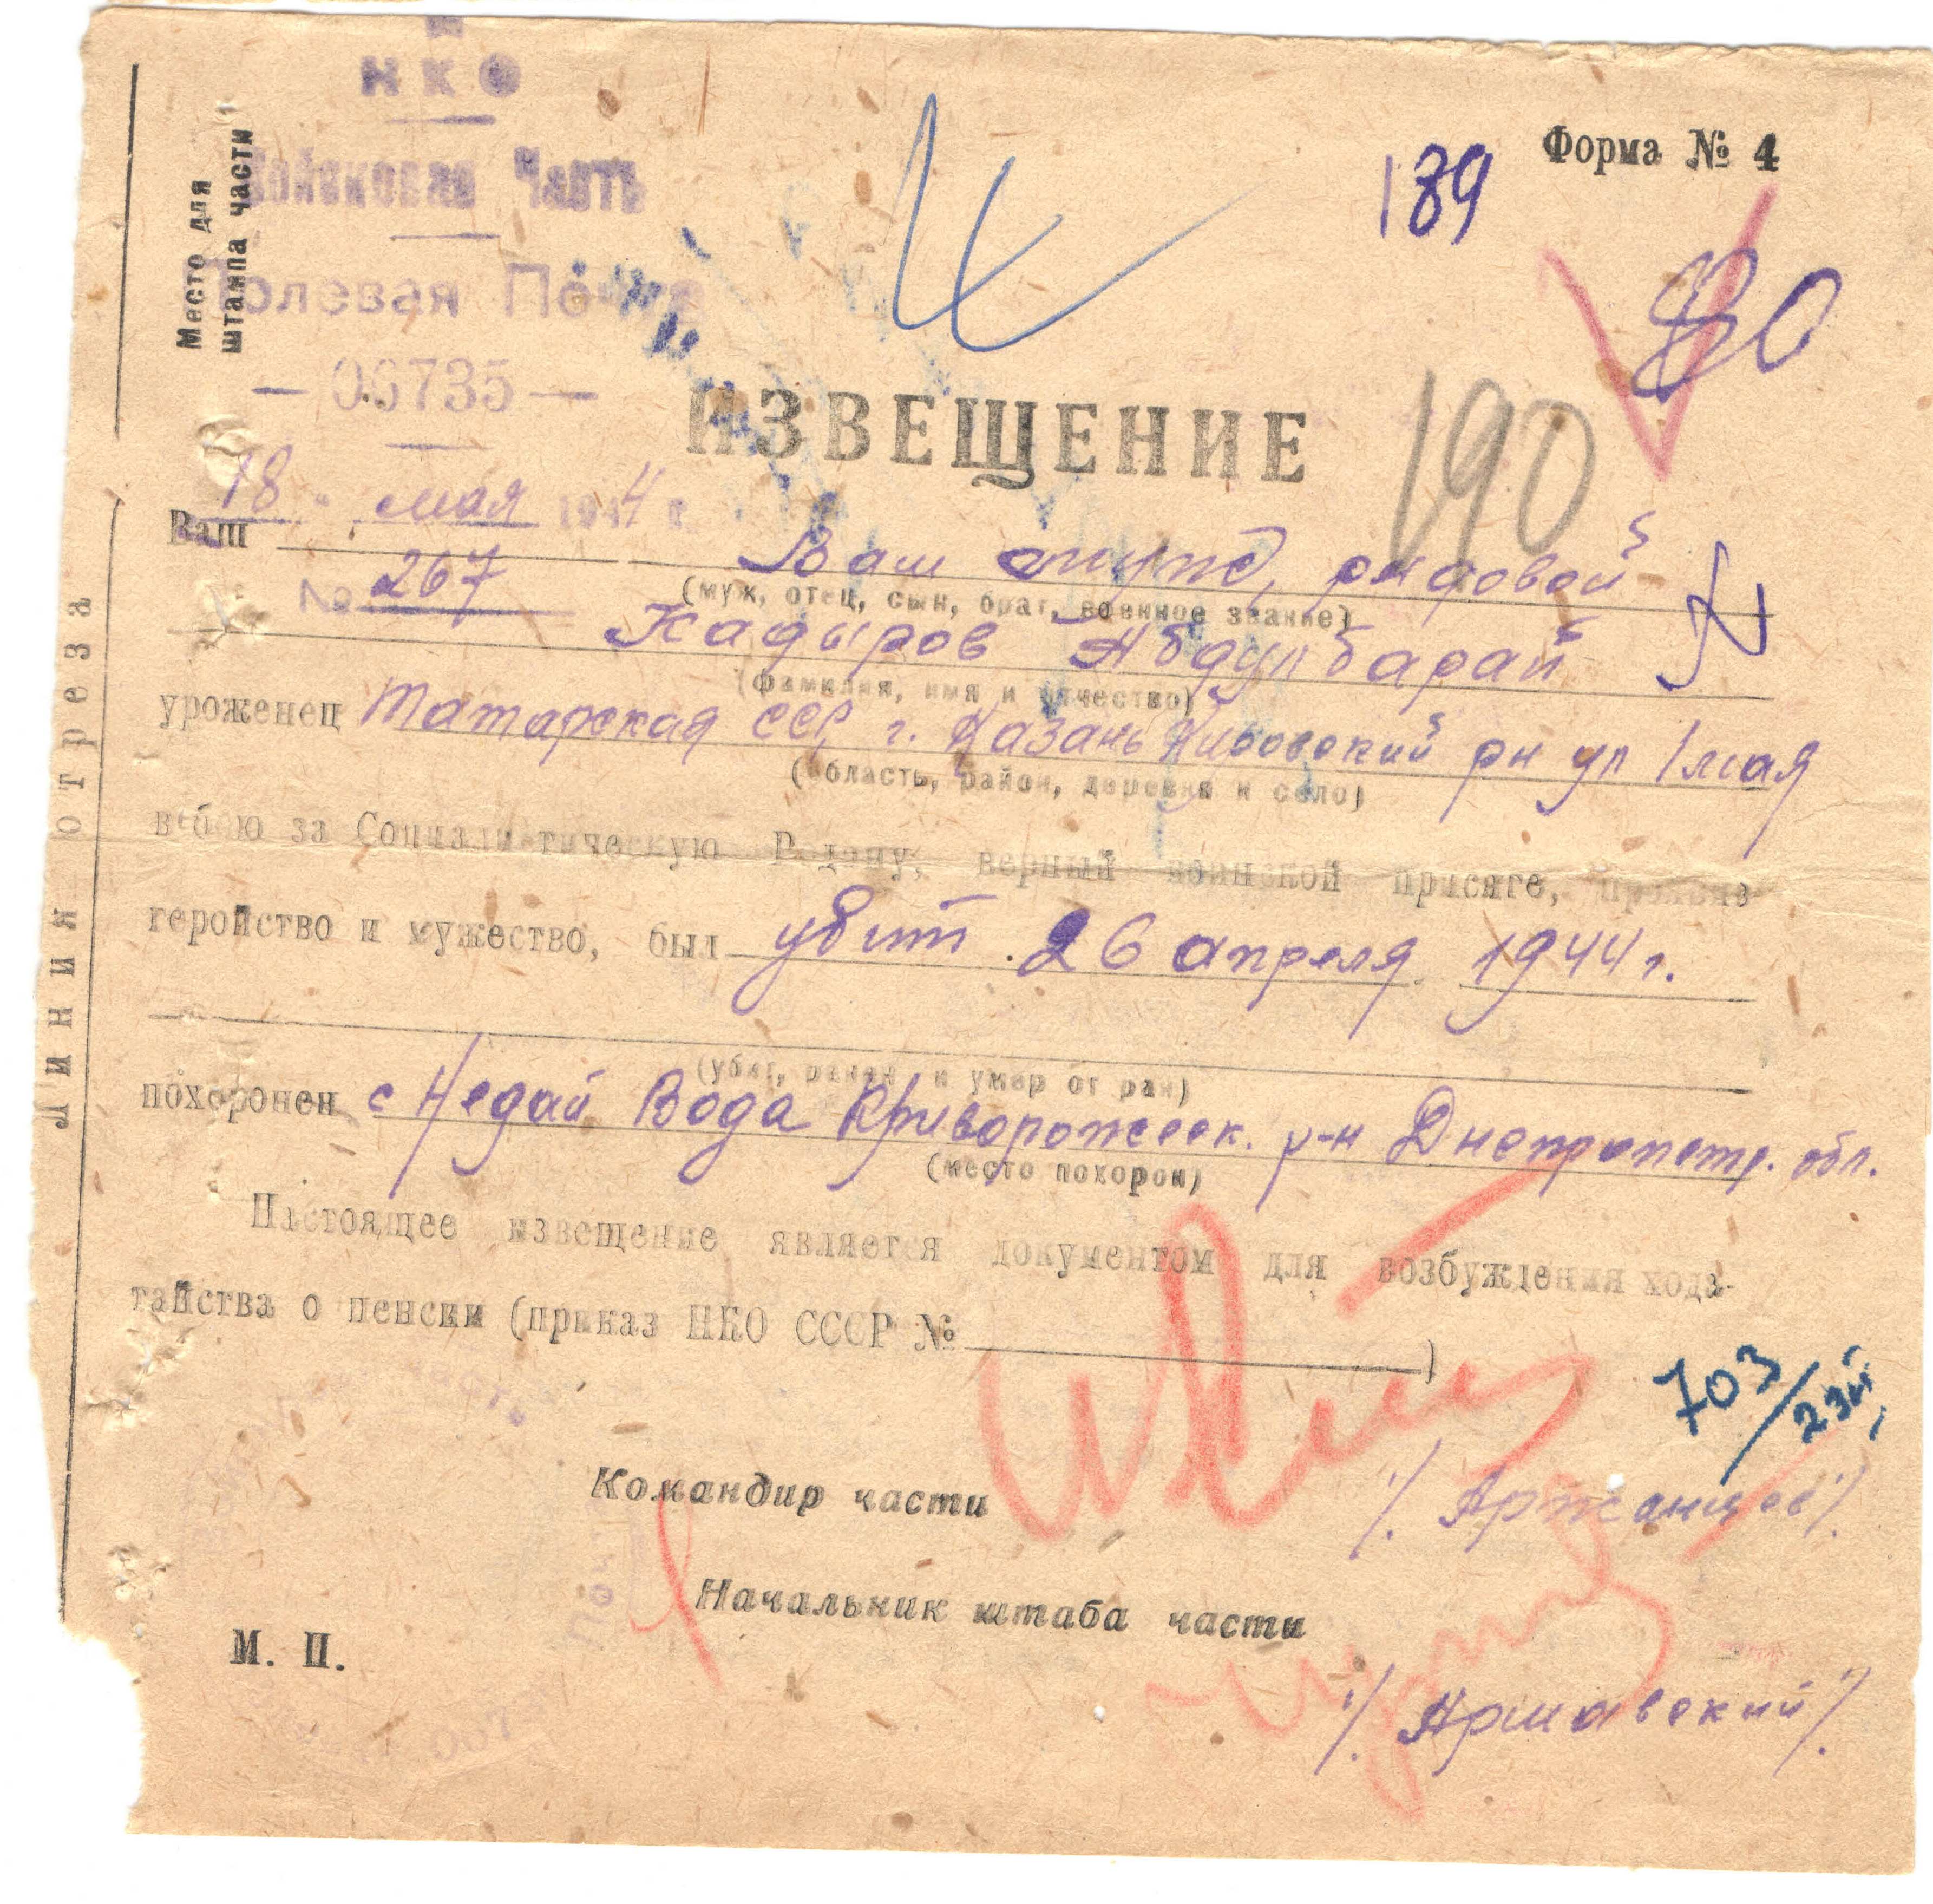 НКО
Войсковая Часть
Полевая Почта
— 06735 —
Место для
штампа части
Форма № 4
189
80
190
ИЗВЕЩЕНИЕ
18 " мая 1944 г
№ 267
Ваш Ваш рядовой
(муж, отец, сын, брат, военное звание)
Кадыров Абдулбарай
(фамилия, имя и отчество)
уроженец Татарская ССР, г. Казань Кировский рн ул 1 мая
(область, район, деревня и село)
в бою за Социалистическую Родину, верный воинской присяге, проявив
геройство и мужество, был убит 26 апреля 1944 г.
(убит, ранен и умер от ран)
похоронен с Недай Вода Криворожск. р-н Днепропетр. обл.
(место похорон)
Настоящее извещение является документом для возбуждения хода-
тайства о пенсии (приказ НКО СССР № )
703/23
Командир части
/Аржанцев/
Начальник штаба части
/Аршавский/
М. П.
Линия отреза